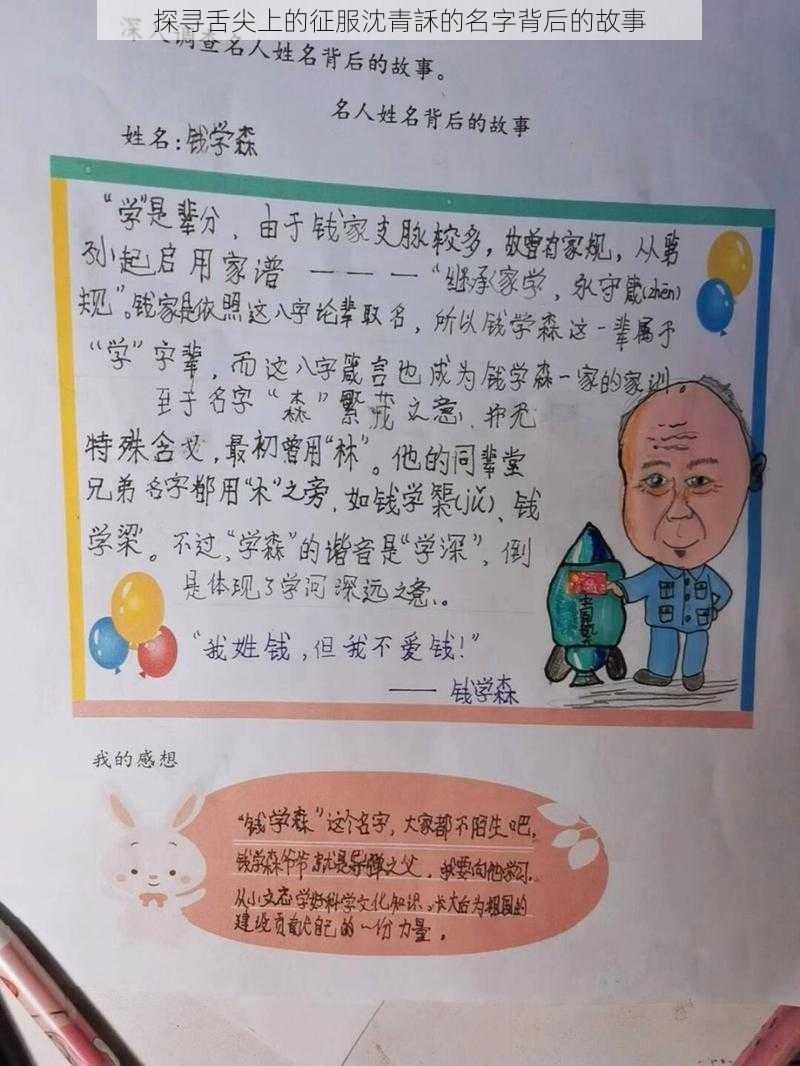 探寻舌尖上的征服沈青訸的名字背后的故事
深入调查名人姓名背后的故事。
名人姓名背后的故事
姓名:钱学森
“学”是辈分，由于钱家支脉较多，故曾有家规，从第
孙起启用家谱———“继承家学，永守箴(zhēn)
规”。钱家是依照这八字论辈取名，所以钱学森这一辈属于
“学”字辈，而这八字箴言也成为钱学森一家的家训。
至于名字“森”繁茂之意，并无
特殊含义，最初曾用“林”。他的同辈堂
兄弟名字都用“木”之旁，如钱学榘(jǔ)、钱
学梁。不过，“学森”的谐音是“学深”，倒
是体现了学问深远之意。
“我姓钱，但我不爱钱！”
——钱学森
中国航天
我的感想
“钱学森”这个名字，大家都不陌生吧，
钱学森爷爷就是导弹之父，我要向他学习，
从小立志学好科学文化知识、长大后为祖国的
建设贡献自己的一份力量。